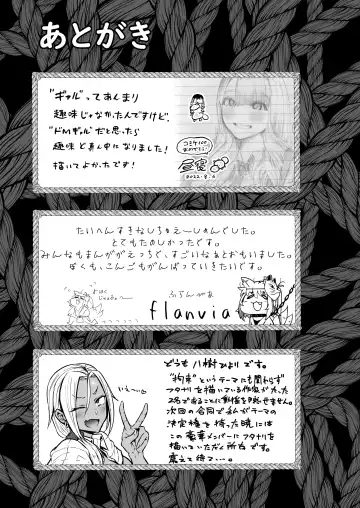 あとがき
"ギャル"ってあんまり
趣味じゃなかったんですけど、
"ドMギャル"だと思ったら
趣味ど真ん中になりました！
描いてよかったです！
コミケ100
おめでとう！
2022.8.6
たいへんすきなしちゅえーしょんでした。
とてもたのしかったです。
みんなもまんががえっちで、すごいなぁとおもいました。
ぼくも、こんごもがんばっていきたいです。
ふらんびあ
flanvia
いえ〜い
どうも 八樹ひよりです。
"拘束"というテーマにも関わらず
フタナリを描いている作家がたった
2名であることに動揺を隠せません。
次回の合同で私がテーマの
決定権を持った暁には
この豪華メンバーにフタナリを
描いていただく所存です。
震えて待て…。